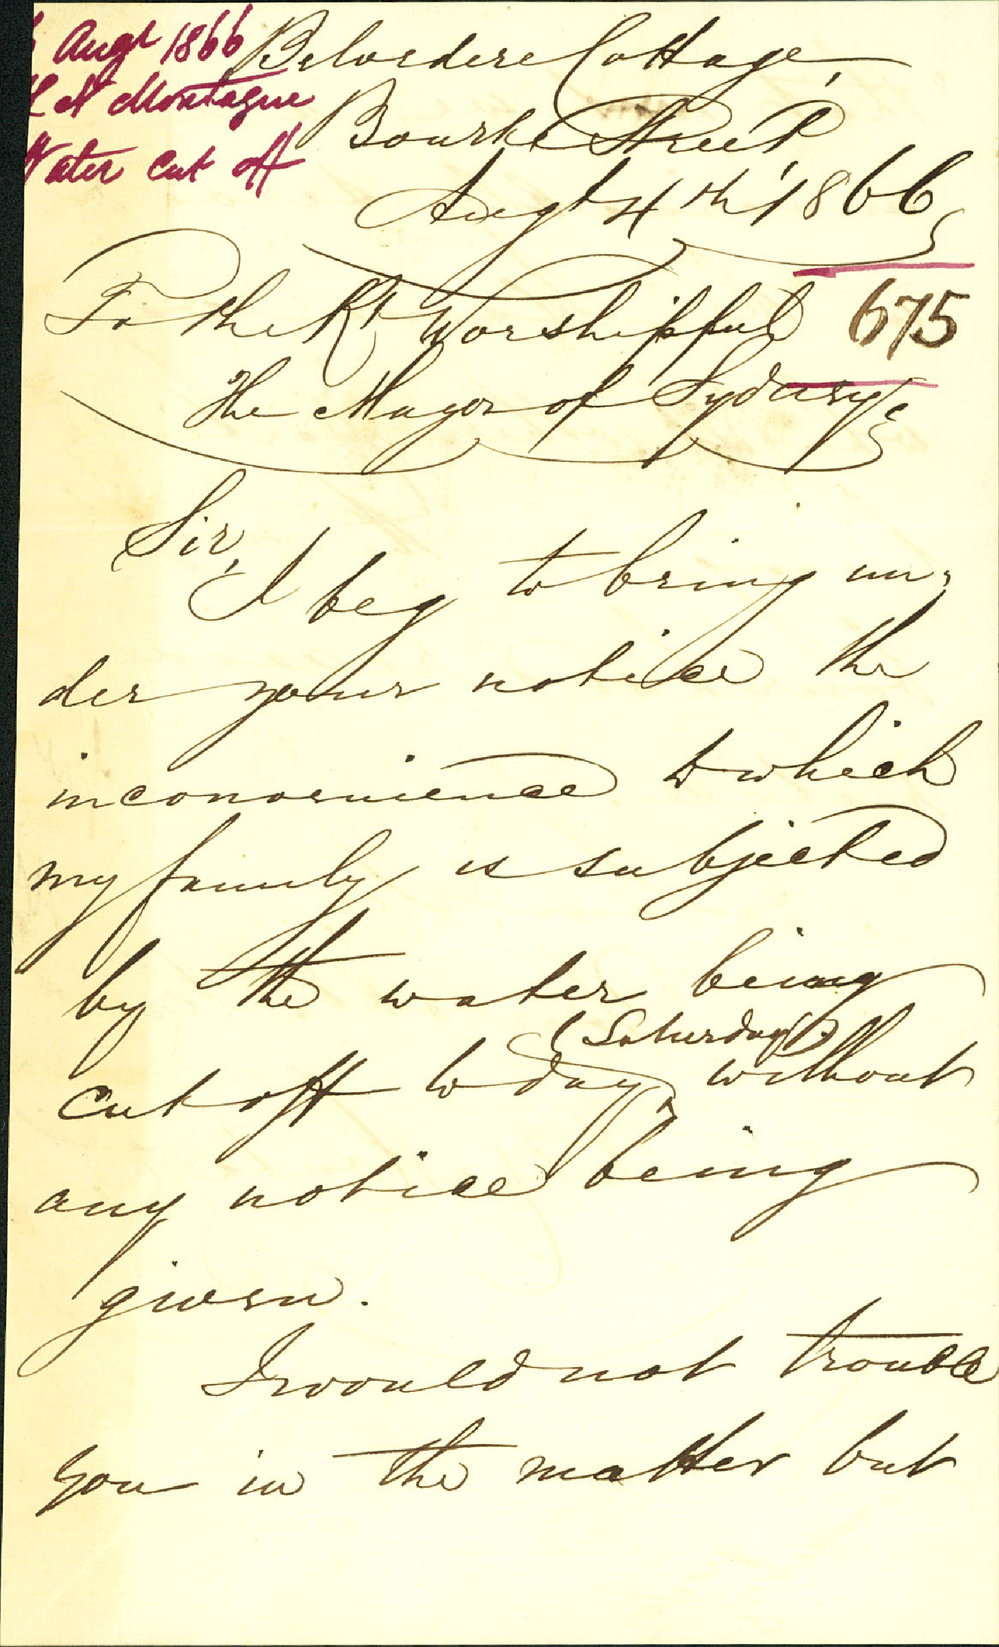 Augt 1866
Montague
Water cut off
Belvedere Cottage,
Bourke Street
Augt 4th 1866
675
To the Rt Worshipful
The Mayor of Sydney
Sir,
I beg to bring un-
der your notice the
inconvenience to which
my family is subjected
by the water being
cut off to day (Saturday) without
any notice being
given.
I would not trouble
you in the matter but